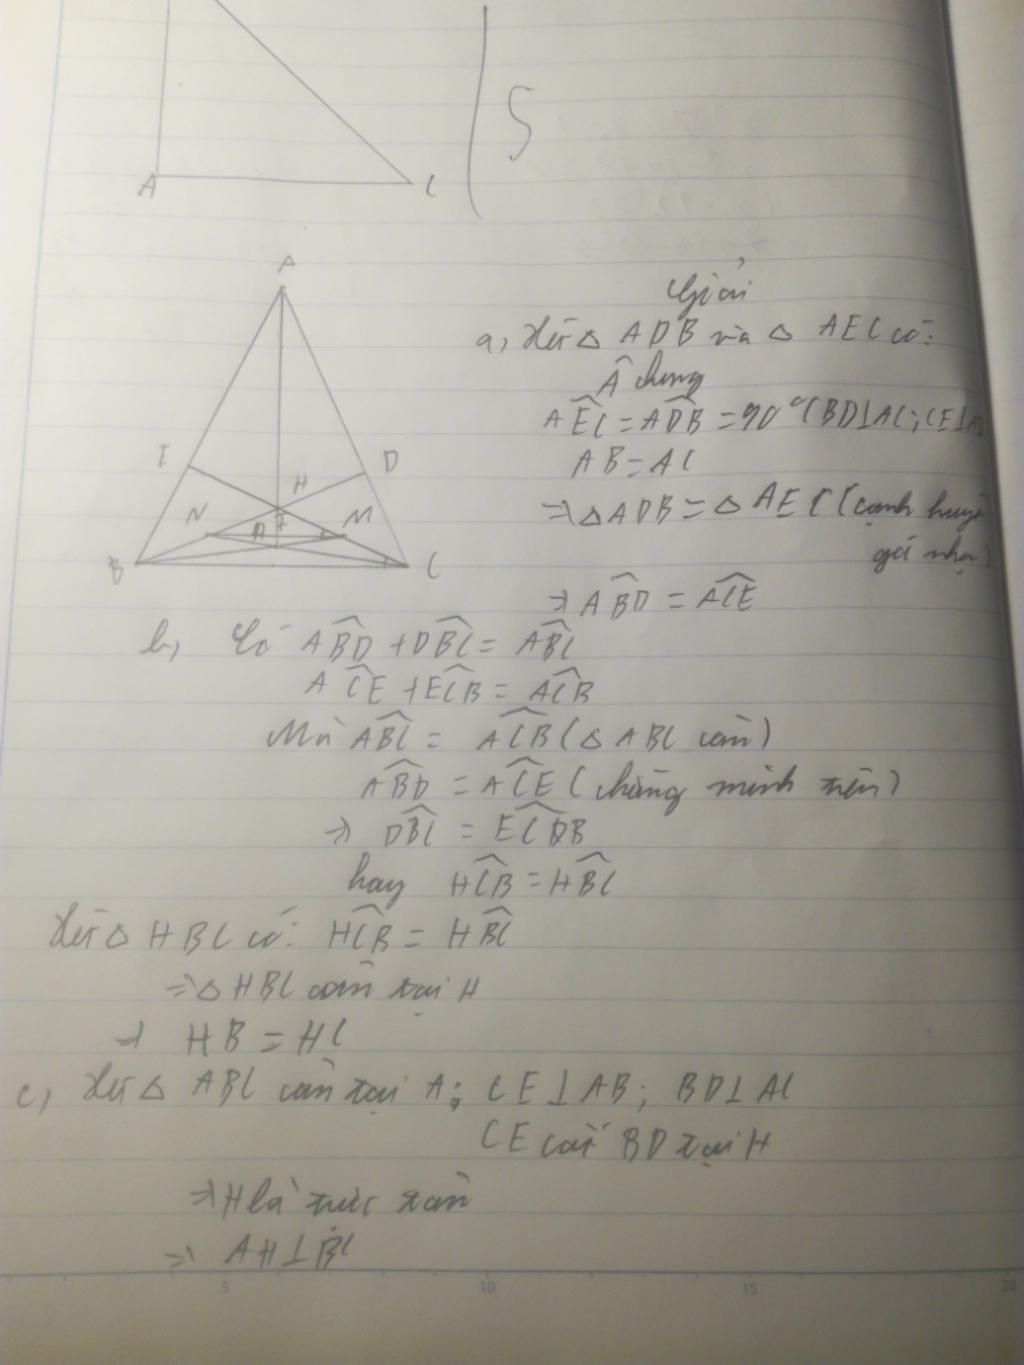 A
C
S
A
E
D
H
N
M
B
C
Giải
a, Xét Δ ADB và Δ AEC có:
Â chung
AÊC = AD̂B = 90° (BD⊥AC; CE⊥AB
AB = AC
⇒ Δ ADB = Δ AEC (cạnh huyền
góc nhọn)
⇒ AB̂D = AĈE
b, Có AB̂D + DB̂C = AB̂C
AĈE + EĈB = AĈB
Mà AB̂C = AĈB (Δ ABC cân)
AB̂D = AĈE (chứng minh trên)
⇒ DB̂C = EĈB
hay HĈB = HB̂C
Xét Δ HBC có: HĈB = HB̂C
⇒ Δ HBC cân tại H
⇒ HB = HC
c, Xét Δ ABC cân tại A; CE⊥AB; BD⊥AC
CE cắt BD tại H
⇒ H là trực tâm
⇒ AH⊥BC
5 10 15 20